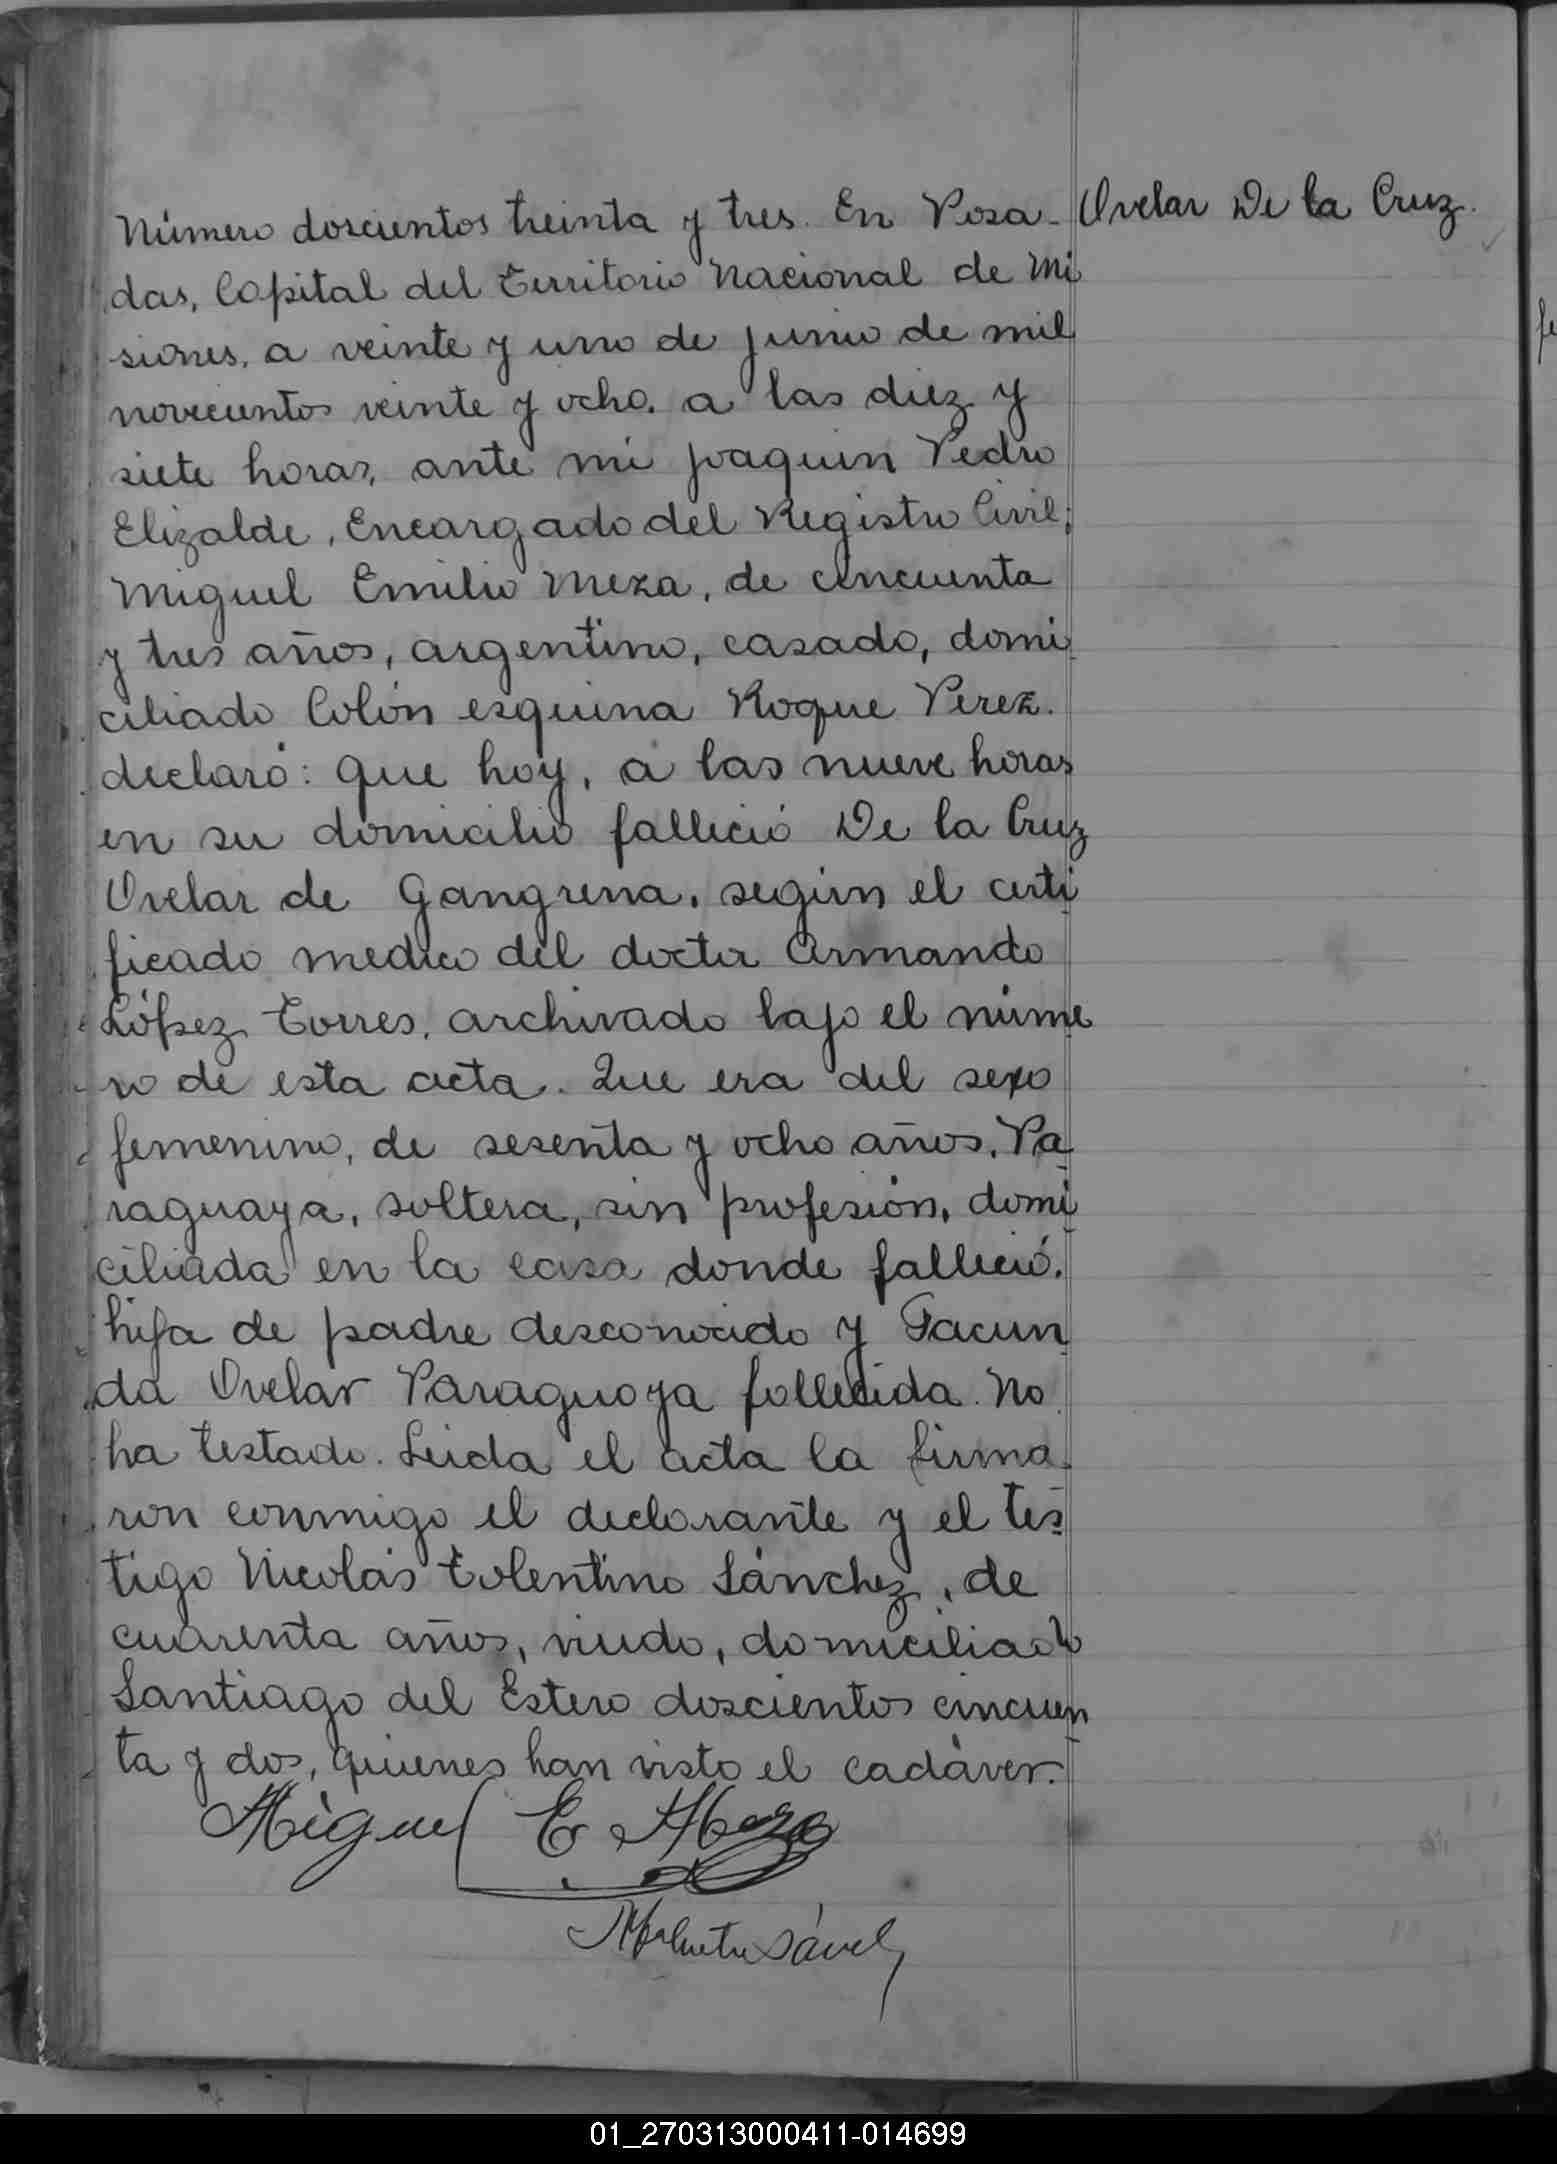 Número doscientos treinta y tres. En Posa-
Ovelar De la Cruz.
das, Capital del Territorio Nacional de Mi
siones, a veinte y uno de junio de mil
novecientos veinte y ocho, a las diez y
siete horas, ante mi Joaquin Pedro
Elizalde, Encargado del Registro Civil;
Miguel Emilio Meza, de cincuenta
y tres años, argentino, casado, domi
ciliado Colón esquina Roque Perez.
declaró: Que hoy, a las nueve horas
en su domicilio falleció De la Cruz
Ovelar de Gangrena, según el certi
ficado medico del doctor Armando
López Torres, archivado bajo el núme
ro de esta acta. Que era del sexo
femenino, de sesenta y ocho años, Pa
raguaya, soltera, sin profesión, domi
ciliada en la casa donde falleció.
hija de padre desconocido y Facun
da Ovelar Paraguaya fallecida. No
ha testado. Leida el acta la firma
ron conmigo el declarante y el tes
tigo Nicolás Tolentino Sánchez, de
cuarenta años, viudo, domiciliado
Santiago del Estero doscientos cincuen
ta y dos, quienes han visto el cadáver.
Miguel E. Meza
01_270313000411-014699